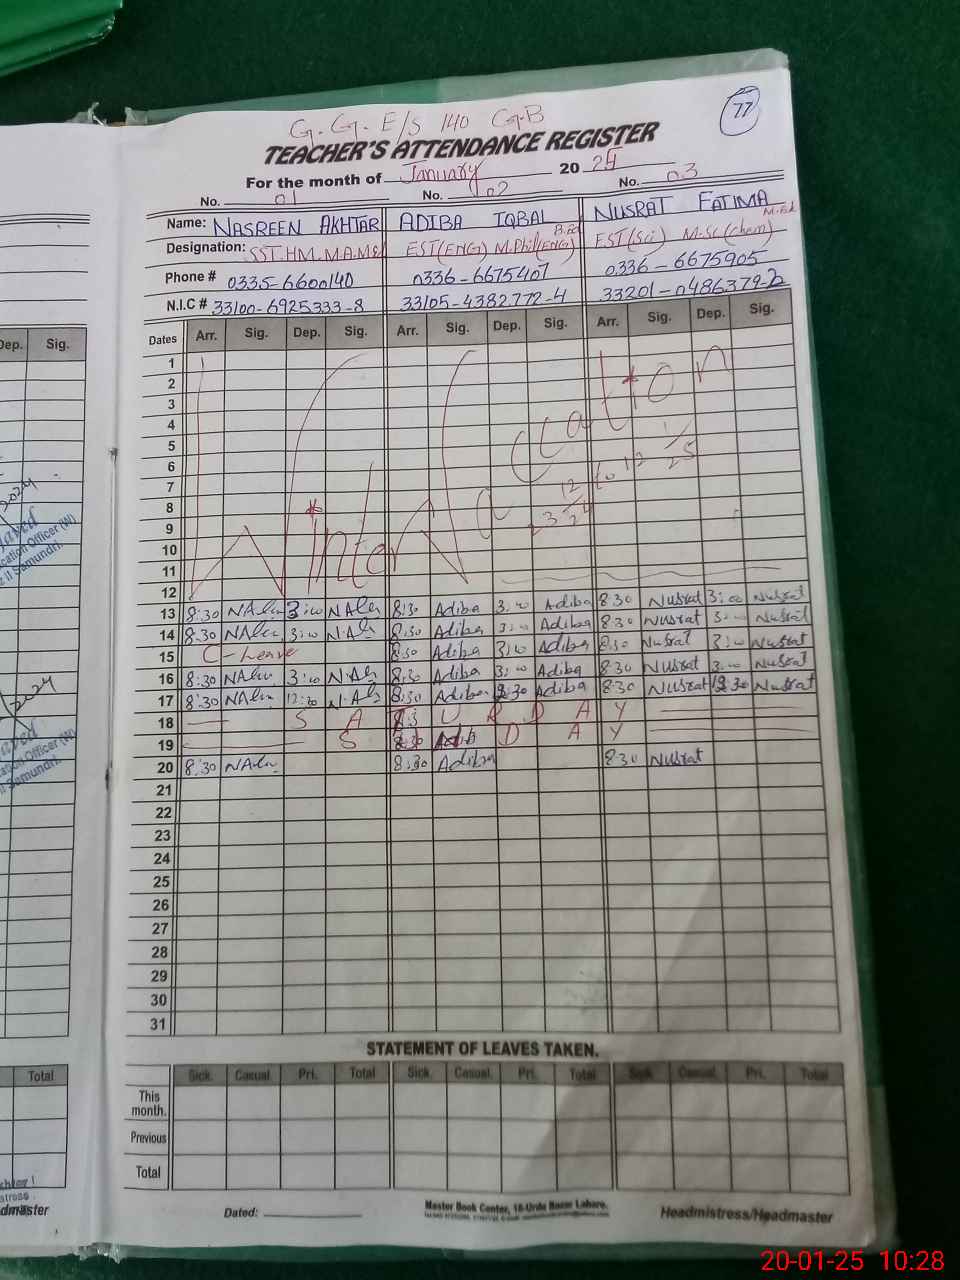 77
G.G.E/S 140 G.B
TEACHER'S ATTENDANCE REGISTER
For the month of January 2025
No. 01 No. 02 No. 03
Name: NASREEN AKHTAR ADIBA IQBAL NUSRAT FATIMA
Designation: SST.HM.M.A.M.Ed EST(ENG) M.Phil(ENG) B.Ed EST(Sci) M.Sc(chem) M.Ed
Phone # 0335-6600140 0336-6675407 0336-6675905
N.I.C # 33100-6925333-8 33105-4382772-4 33201-0486379-2
Dates Arr. Sig. Dep. Sig. Arr. Sig. Dep. Sig. Arr. Sig. Dep. Sig.
1
2
3
4
5
6
7
8
9
10
11
12
Winter Vacation
23 12/24 to 12 1/25
13 8:30 NAkh 3:00 NAkh 8:30 Adiba 3:00 Adiba 8:30 Nusrat 3:00 Nusrat
14 8:30 NAkh 3:00 N.Akh 8:30 Adiba 3:00 Adiba 8:30 Nusrat 3:00 Nusrat
15 C-Leave 8:30 Adiba 3:00 Adiba 8:30 Nusrat 3:00 Nusrat
16 8:30 NAkh 3:00 N.Akh 8:30 Adiba 3:00 Adiba 8:30 Nusrat 3:00 Nusrat
17 8:30 NAkh 12:30 N.Akh 8:30 Adiba 12:30 Adiba 8:30 Nusrat 12:30 Nusrat
18 S A T U R D A Y
19 S D A Y
20 8:30 NAkh 8:30 Adiba 8:30 Nusrat
21
22
23
24
25
26
27
28
29
30
31
STATEMENT OF LEAVES TAKEN.
Sick. Casual. Pri. Total Sick. Casual. Pri. Total Sick. Casual. Pri. Total
This month.
Previous
Total
Master Book Center, 18-Urdu Bazar Lahore.
Dated: Headmistress/Headmaster
Dep. Sig.
2024
cation Officer (W)
Samundri.
2024
Samundri.
Total
dmaster
20-01-25 10:28